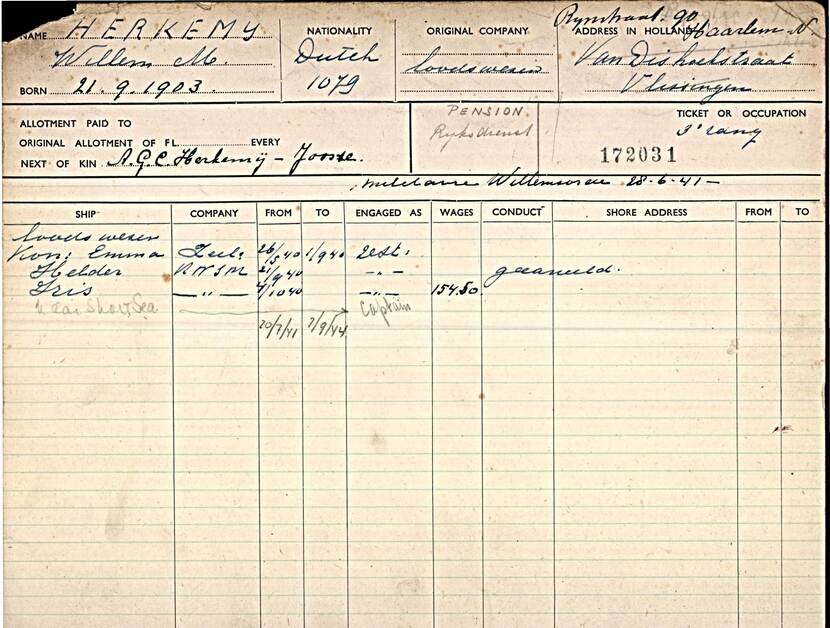 NAME HERKEMY NATIONALITY ORIGINAL COMPANY Rynstraat. 90
ADDRESS IN HOLLAND Haarlem N.
Willem M. Dutch Loodswezen Van Dishoekstraat
BORN 21.9.1903. 1079 Vlissingen
ALLOTMENT PAID TO PENSION. TICKET OR OCCUPATION
ORIGINAL ALLOTMENT OF FL. EVERY Ryksdienst 3e rang
NEXT OF KIN A.G.C. Herkemy - Joosse. 172031
militaire Willemsorde 28-6-41-
SHIP COMPANY FROM TO ENGAGED AS WAGES CONDUCT SHORE ADDRESS FROM TO
Loodswezen
Kon: Emma Zeel: 26/5 40 1/9 40 2e st:
Helder KNSM 21/9 40 -„- 
Iris —„— 7/10 40 -„- 154.50
naar Short Sea Captain
20/7/41 7/9/44